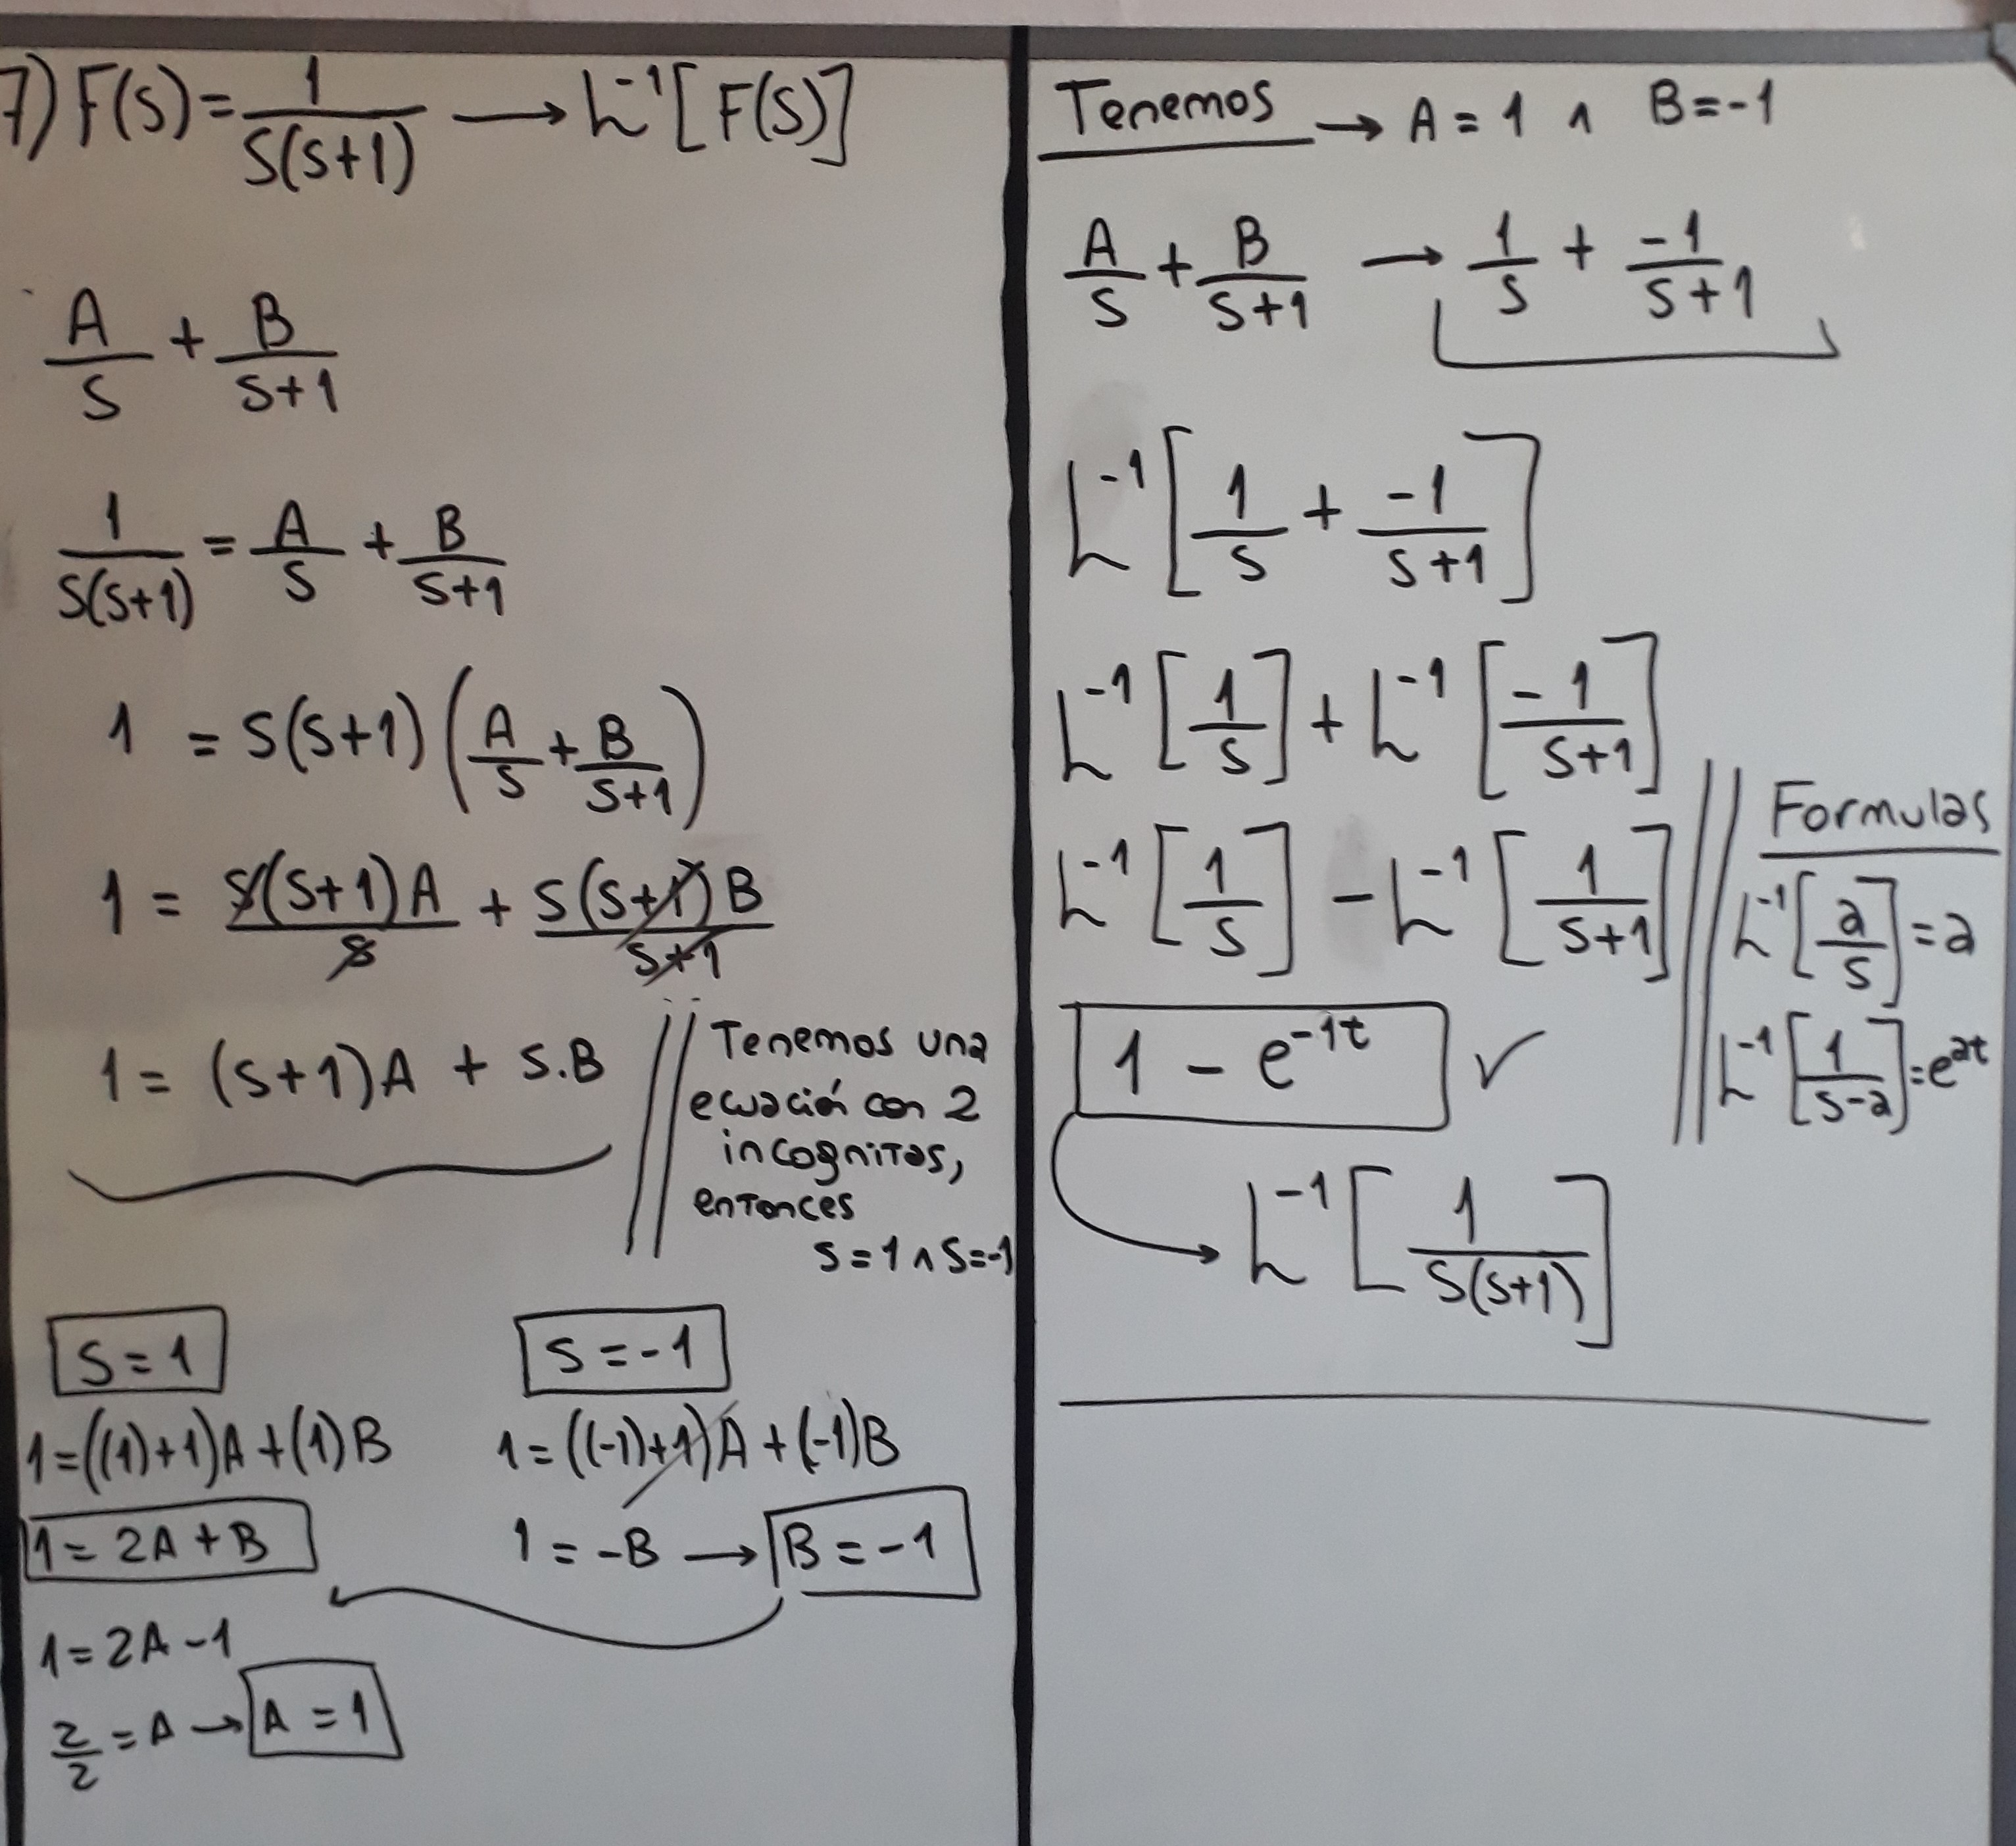 7) F(s) = 1/(s(s+1)) → L⁻¹[F(s)]
A/s + B/(s+1)
1/(s(s+1)) = A/s + B/(s+1)
1 = s(s+1)(A/s + B/(s+1))
1 = s(s+1)A/s + s(s+1)B/(s+1)
1 = (s+1)A + s.B
Tenemos una
ecuación con 2
incognitas,
entonces
s = 1 ∧ s = -1
s = 1
1 = ((1)+1)A + (1)B
1 = 2A + B
1 = 2A - 1
2/2 = A → A = 1
s = -1
1 = ((-1)+1)A + (-1)B
1 = -B → B = -1
Tenemos → A = 1 ∧ B = -1
A/s + B/(s+1) → 1/s + -1/(s+1)
L⁻¹[1/s + -1/(s+1)]
L⁻¹[1/s] + L⁻¹[-1/(s+1)]
L⁻¹[1/s] - L⁻¹[1/(s+1)]
Formulas
L⁻¹[a/s] = a
L⁻¹[1/(s-a)] = e^(at)
1 - e^(-1t) ✓
→ L⁻¹[1/(s(s+1))]